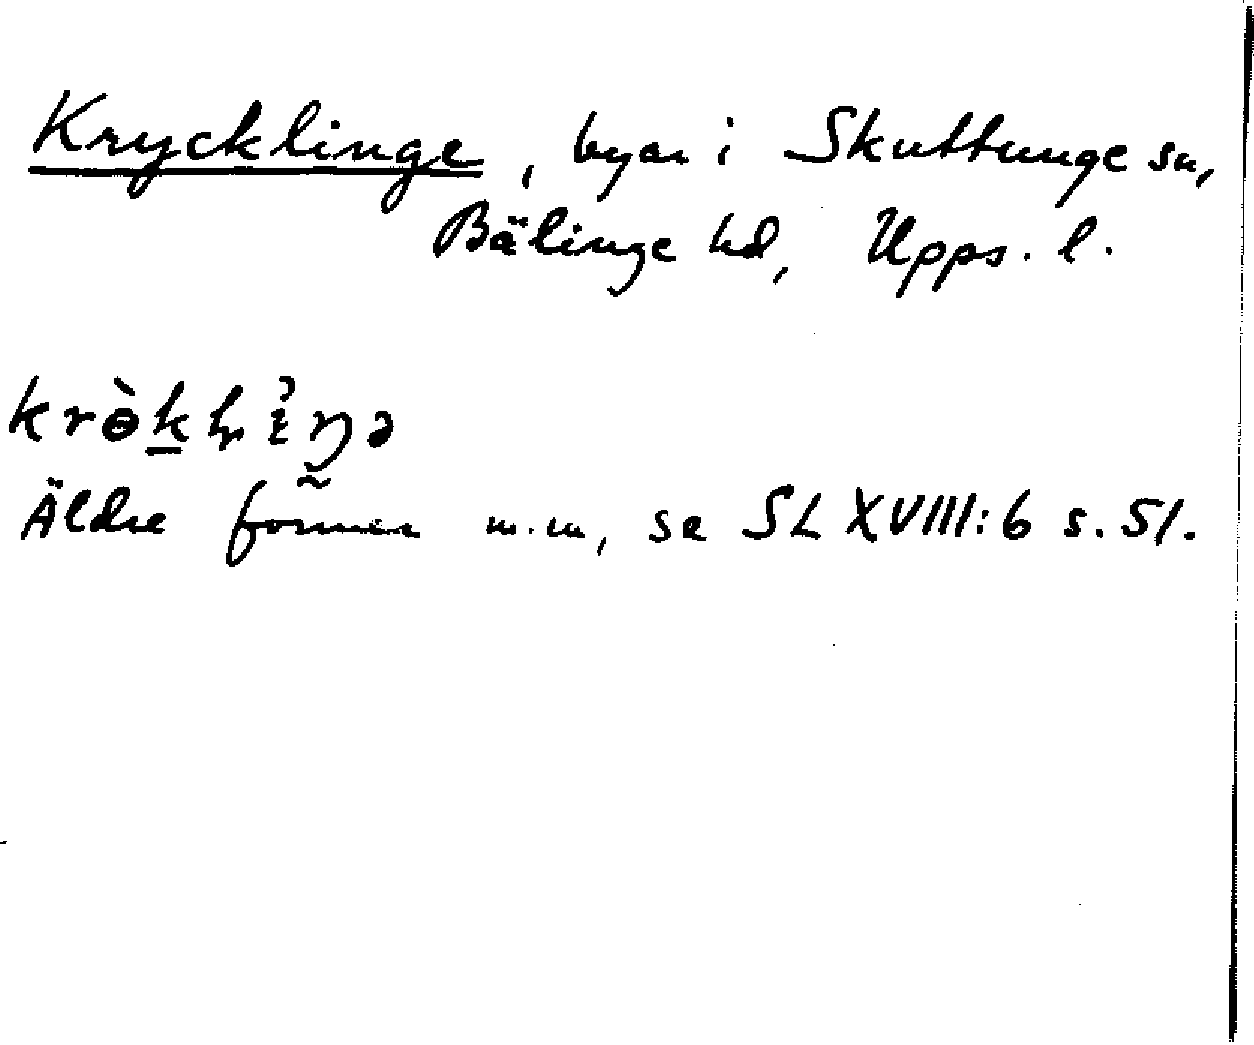 Krycklinge, byar i Skuttunge sn,
Bälinge hd, Upps. l.
Äldre former m.m, se SL XVIII:6 s. 51.